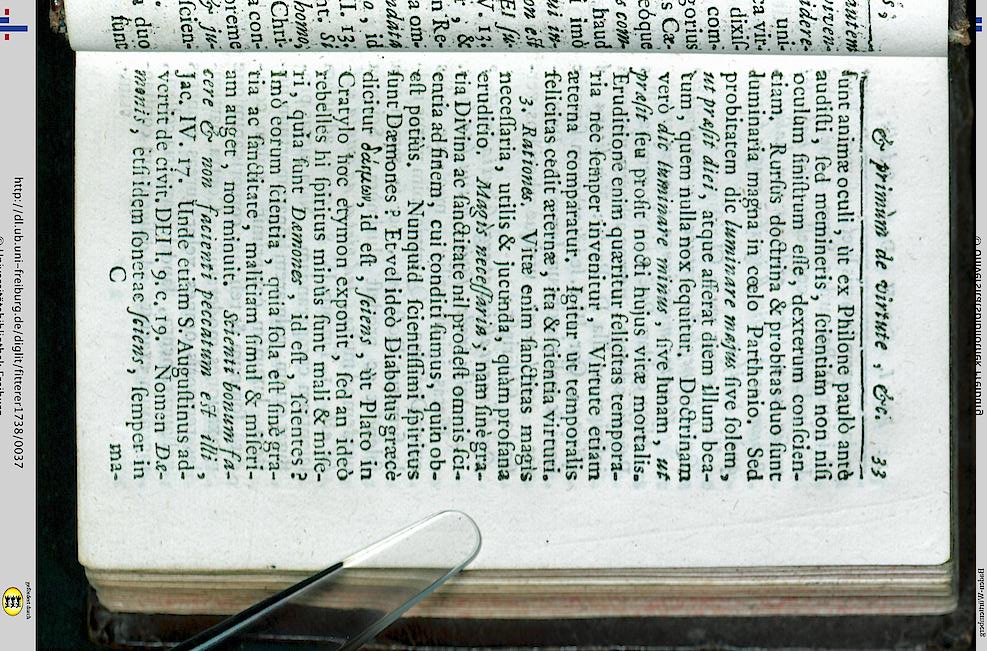 & primùm de virtute, &c. 33
sunt animæ oculi, ùt ex Philone paulò antè
audisti, sed memineris, scientiam non nisi
oculum sinistrum esse, dexterum conscien-
tiam. Rursus doctrina & probitas duo sunt
luminaria magna in cœlo Parthenio. Sed
probitatem dic luminare majus sive solem,
ut præsit diei, atque afferat diem illum bea-
tum, quem nulla nox sequitur. Doctrinam
verò dic luminare minus, sive lunam, ut
præsit seu prosit nocti hujus vitæ mortalis.
Eruditione enim quæritur felicitas tempora-
ria nec semper invenitur, Virtute etiam
æterna comparatur. Igitur ut temporalis
felicitas cedit æternæ, ita & scientia virtuti.
3. Rationes. Vitæ enim sanctitas magis
necessaria, utilis & jucunda, quàm profana
eruditio. Magis necessaria; nam sinè gra-
tia Divina ac sanctitate nil prodest omnis sci-
entia ad finem, cui conditi sumus, quin ob-
est potiùs. Nunquid scientissimi spiritus
sunt Dæmones? Et vel ideò Diabolus græcè
dicitur δαίμων, id est, sciens, ùt Plato in
Cratylo hoc etymon exponit, sed an ideò
rebelles hi spiritus minùs sunt mali & mise-
ri, quia sunt Dæmones, id est, scientes?
Imò eorum scientia, quia sola est sinè gra-
tia ac sanctitate, malitiam simul & miseri-
am auget, non minuit. Scienti bonum fa-
cere & non facienti peccatum est illi,
Jac. IV. 17. Unde etiam S. Augustinus ad-
vertit de civit. DEI l. 9. c. 19. Nomen Dæ-
monis, etsi idem sonet ac sciens, semper in
C
ma-
http://dl.ub.uni-freiburg.de/diglit/fitterer1738/0037
© Universitätsbibliothek Freiburg
gefördert durch
Baden-Württemberg